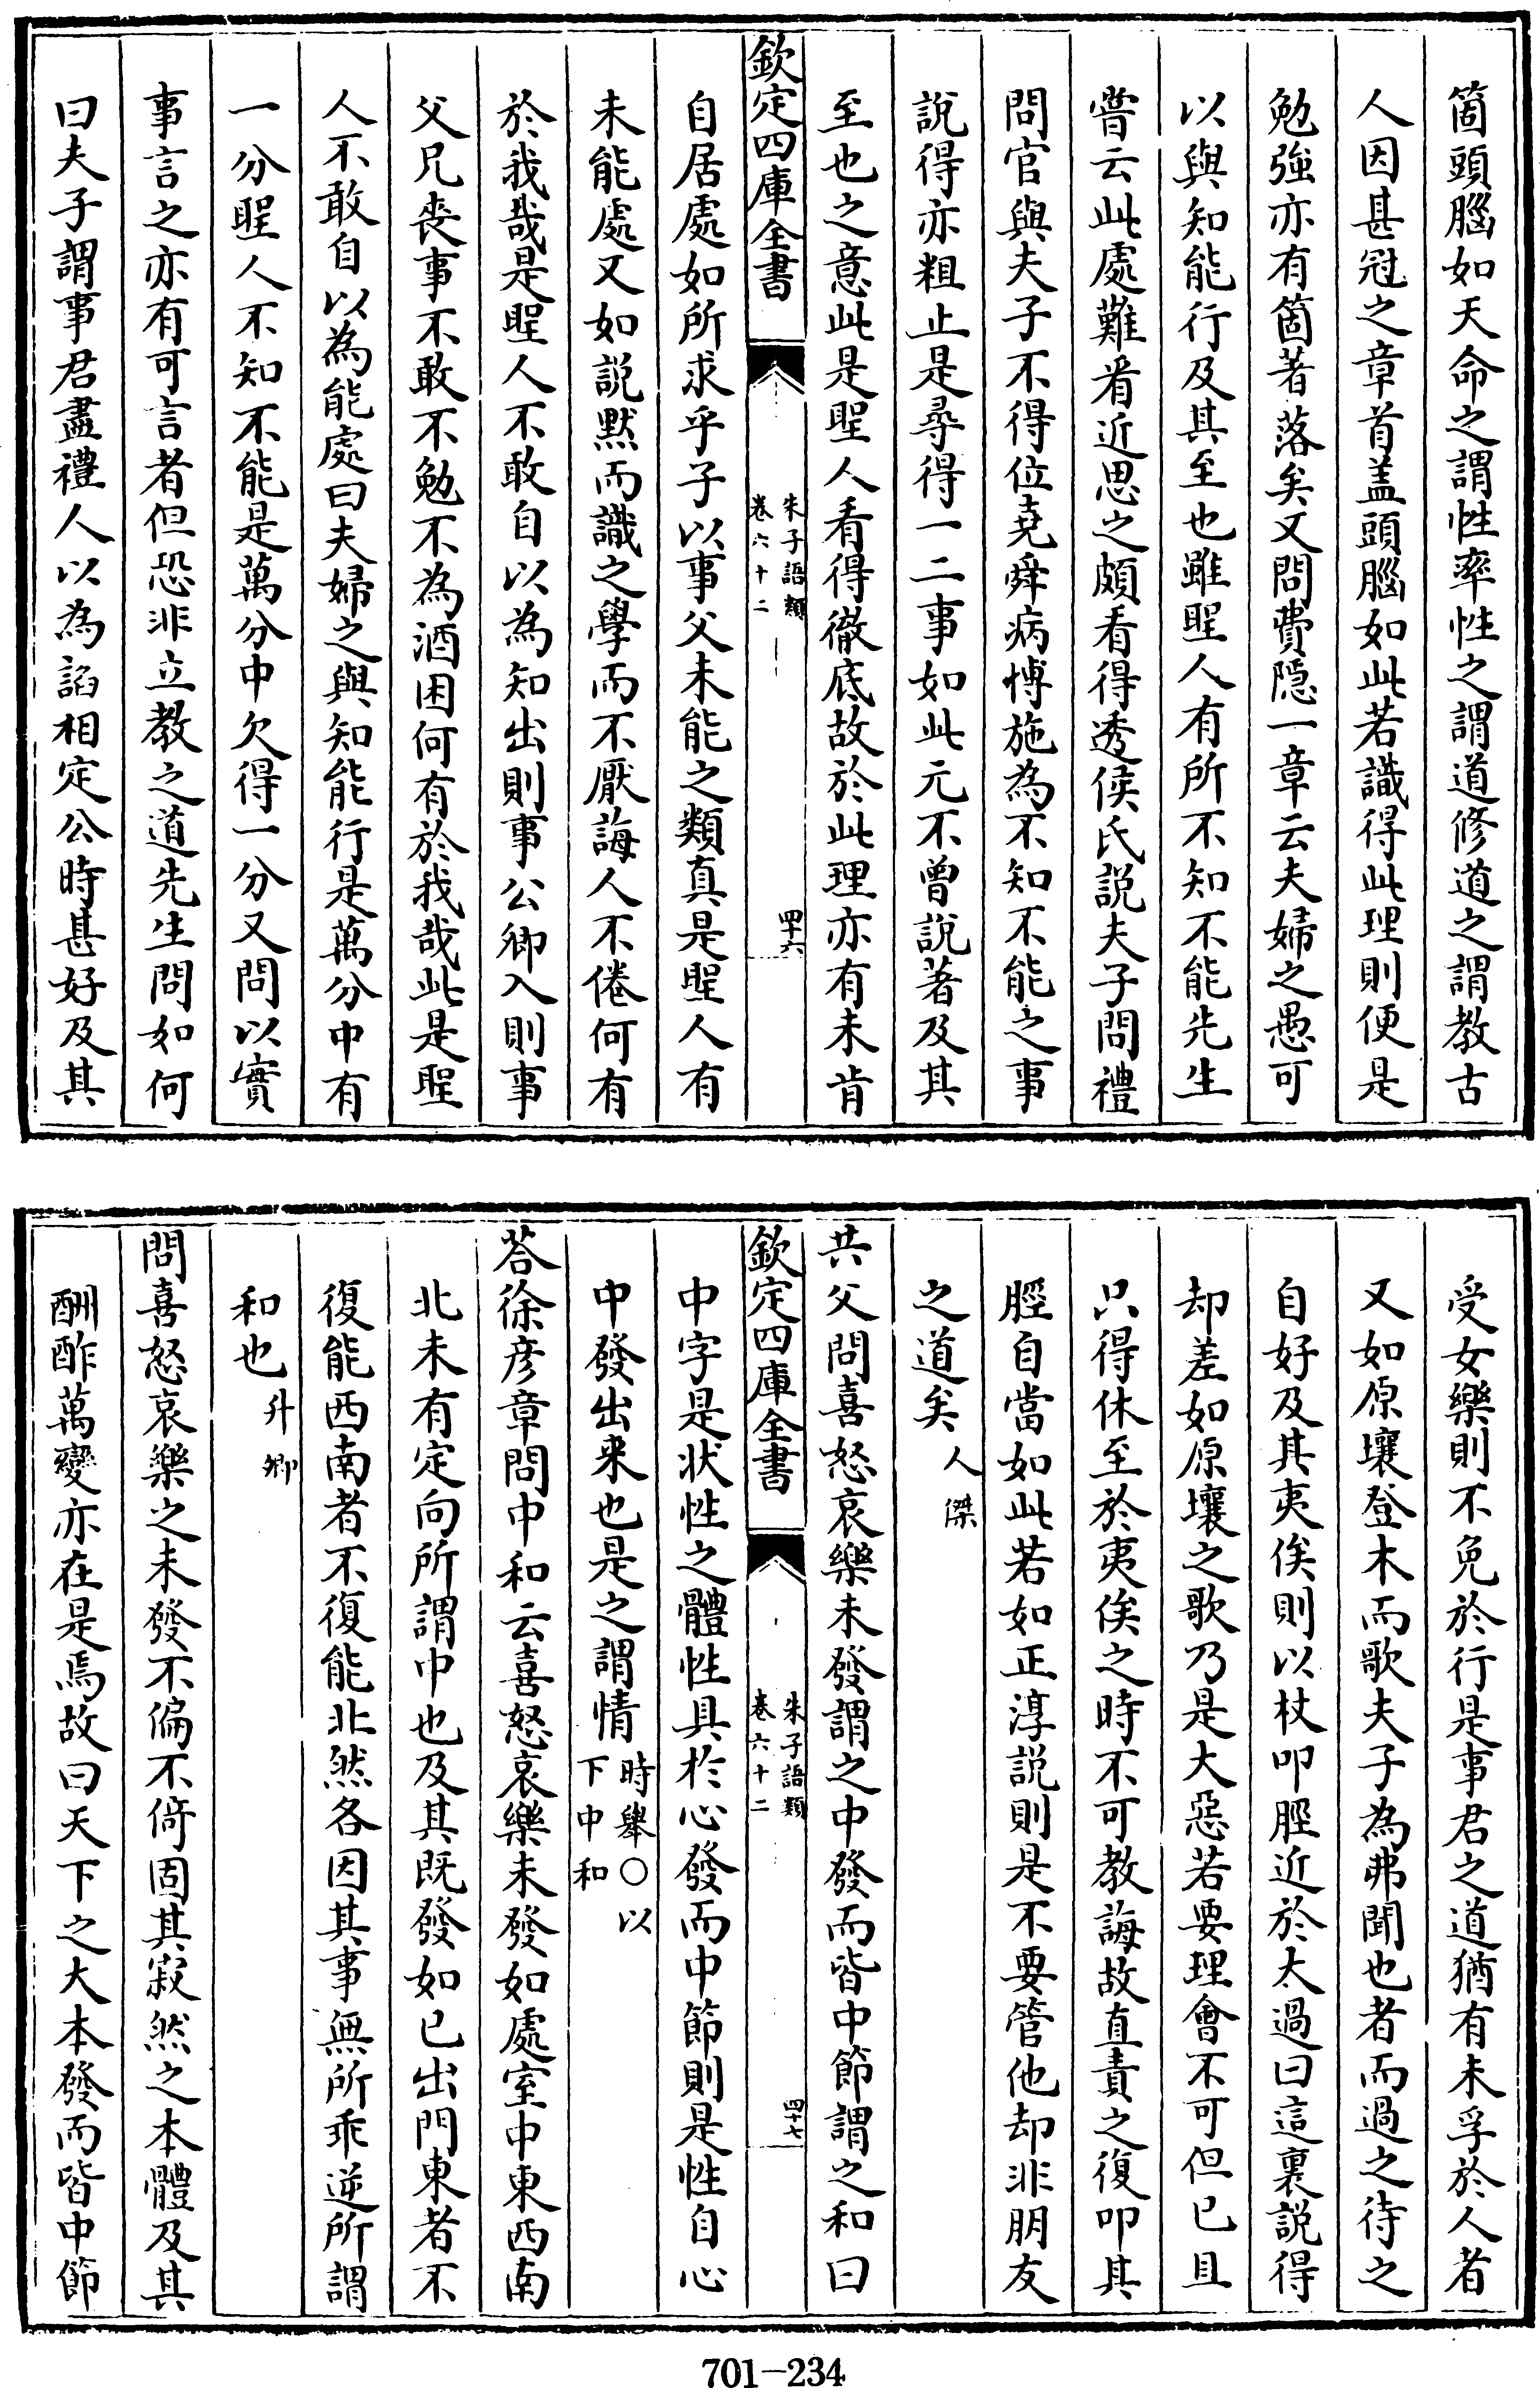 箇頭腦如天命之謂性率性之謂道修道之謂教古
人因甚冠之章首盖頭腦如此若識得此理則便是
勉強亦有箇著落矣又問費隠一章云夫婦之愚可
以與知能行及其至也雖聖人有所不知不能先生
嘗云此處難看近思之頗看得透侯氏説夫子問禮
問官與夫子不得位堯舜病博施為不知不能之事
說得亦粗止是尋得一二事如此元不曾說著及其
至也之意此是聖人看得徹底故於此理亦有未肯
欽定四庫全書
朱子語類
卷六十二
四十六
自居處如所求乎子以事父未能之類真是聖人有
未能處又如説默而識之學而不厭誨人不倦何有
於我哉是聖人不敢自以為知出則事公卿入則事
父兄喪事不敢不勉不為酒困何有於我哉此是聖
人不敢自以為能處曰夫婦之與知能行是萬分中有
一分聖人不知不能是萬分中欠得一分又問以實
事言之亦有可言者但恐非立教之道先生問如何
曰夫子謂事君盡禮人以為諂相定公時甚好及其
受女樂則不免於行是事君之道猶有未孚於人者
又如原壤登木而歌夫子為弗聞也者而過之待之
自好及其夷俟則以杖叩脛近於太過曰這裏説得
却差如原壤之歌乃是大惡若要理會不可但已且
只得休至於夷俟之時不可教誨故直責之復叩其
脛自當如此若如正淳説則是不要管他却非朋友
之道矣人傑
共父問喜怒哀樂未發謂之中發而皆中節謂之和曰
欽定四庫全書
朱子語類
卷六十二
四十七
中字是狀性之體性具於心發而中節則是性自心
中發出来也是之謂情時舉○以下中和
荅徐彦章問中和云喜怒哀樂未發如處室中東西南
北未有定向所謂中也及其既發如已出門東者不
復能西南者不復能北然各因其事無所乖逆所謂
和也升卿
問喜怒哀樂之未發不偏不倚固其寂然之本體及其
酬酢萬變亦在是焉故曰天下之大本發而皆中節
701-234